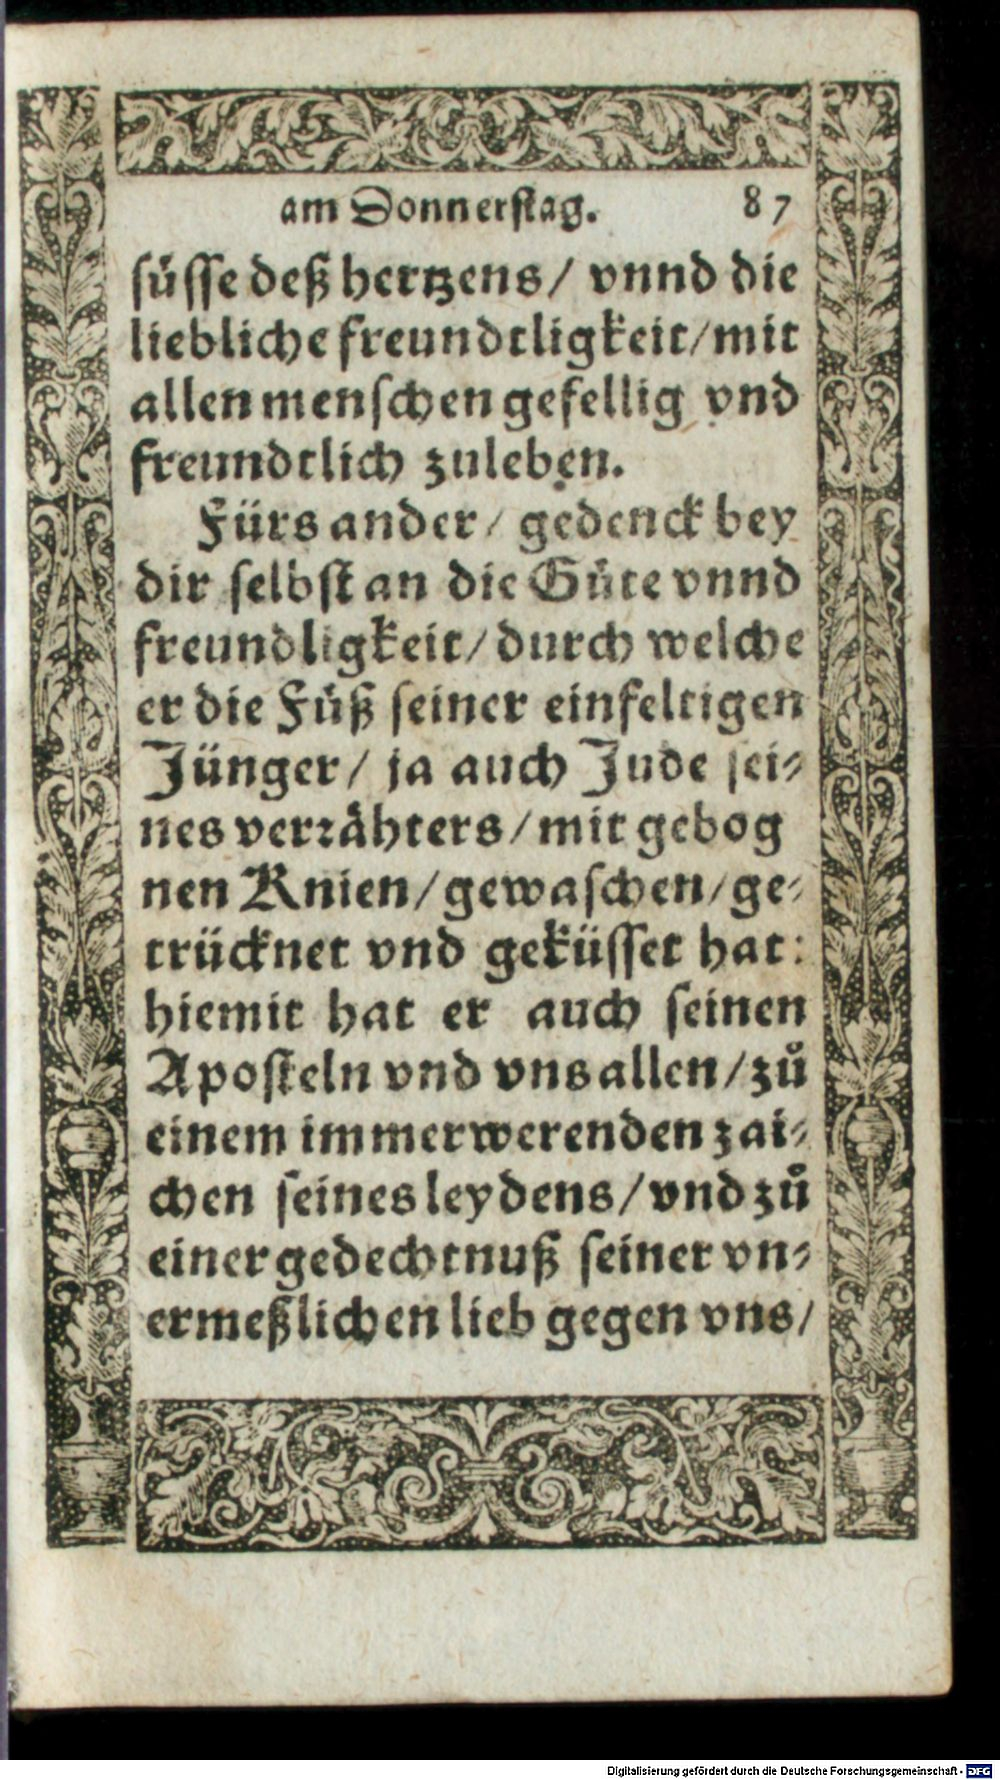 am Donnerstag. 87
süsse deß hertzens / vnnd die
liebliche freundtligkeit / mit
allen menschen gefellig vnd
freundtlich zuleben.
Fürs ander / gedenck bey
dir selbst an die Güte vnnd
freundligkeit / durch welche
er die Füß seiner einfeltigen
Jünger / ja auch Jude sei-
nes verrähters / mit gebog
nen Knien / gewaschen / ge-
trücknet vnd geküsset hat:
hiemit hat er auch seinen
Aposteln vnd vns allen / zů
einem immerwerenden zai-
chen seines leydens / vnd zů
einer gedechtnuß seiner vn-
ermeßlichen lieb gegen vns /
Digitalisierung gefördert durch die Deutsche Forschungsgemeinschaft - DFG